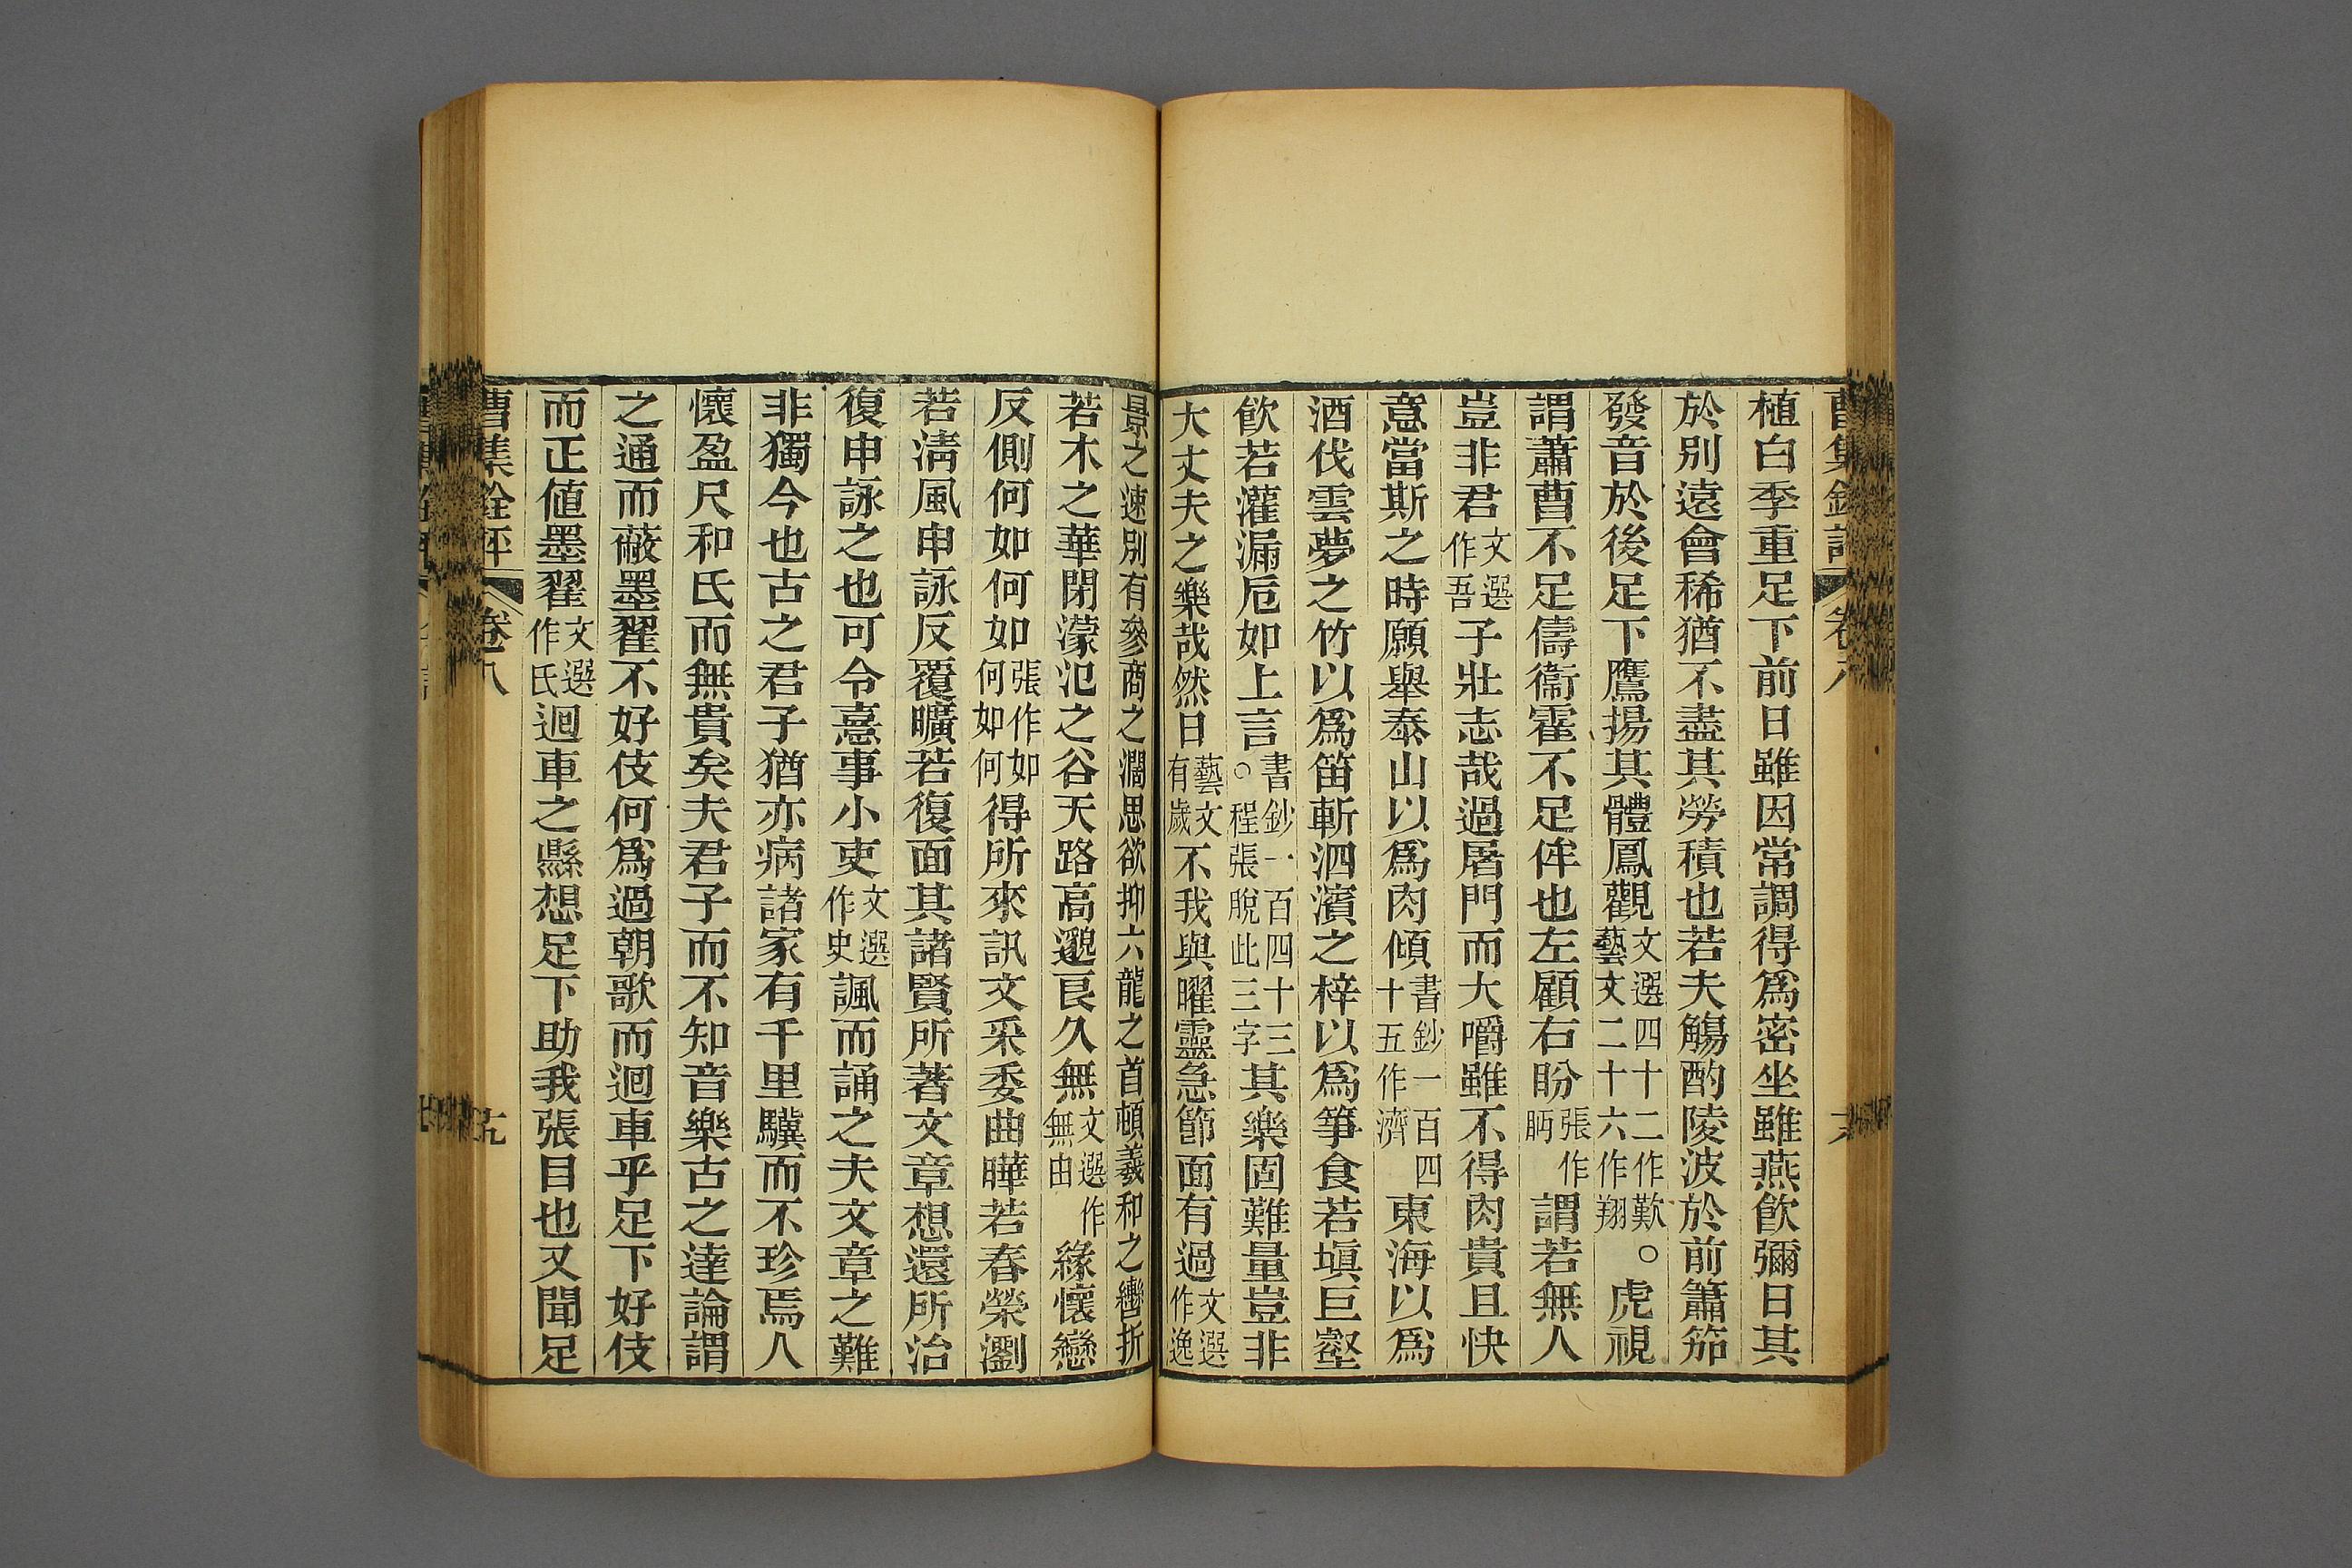 植白季重足下前日雖因常調得爲密坐雖燕飮彌日其
於別遠會稀猶不盡其勞積也若夫觴酌陵波於前簫笳
發音於後足下鷹揚其體鳳觀文選四十二作歎藝文二十六作翔。虎視
謂蕭曹不足儔衞霍不足侔也左顧右盼張作眄謂若無人
豈非君文選作吾子壯志哉過屠門而大嚼雖不得肉貴且快
意當斯之時願舉泰山以爲肉傾書鈔一百四十五作濟東海以爲
酒伐雲夢之竹以爲笛斬泗濱之梓以爲箏食若塡巨壑
飮若灌漏卮如上言書鈔一百四十三。程張脫此三字其樂固難量豈非
大丈夫之樂哉然日藝文有歲不我與曜靈急節面有過文選作逸
景之速別有參商之濶思欲抑六龍之首頓羲和之轡折
若木之華閉濛汜之谷天路高邈良久無文選作無由緣懷戀
反側何如何如張作如何如何得所來訊文采委曲曄若春榮瀏
若淸風申詠反覆曠若復面其諸賢所著文章想還所治
復申詠之也可令憙事小吏文選作史諷而誦之夫文章之難
非獨今也古之君子猶亦病諸家有千里驥而不珍焉人
懷盈尺和氏而無貴矣夫君子而不知音樂古之達論謂
之通而蔽墨翟不好伎何爲過朝歌而迴車乎足下好伎
而正値墨翟文選作氏迴車之縣想足下助我張目也又聞足
曹集銓評 卷八 九